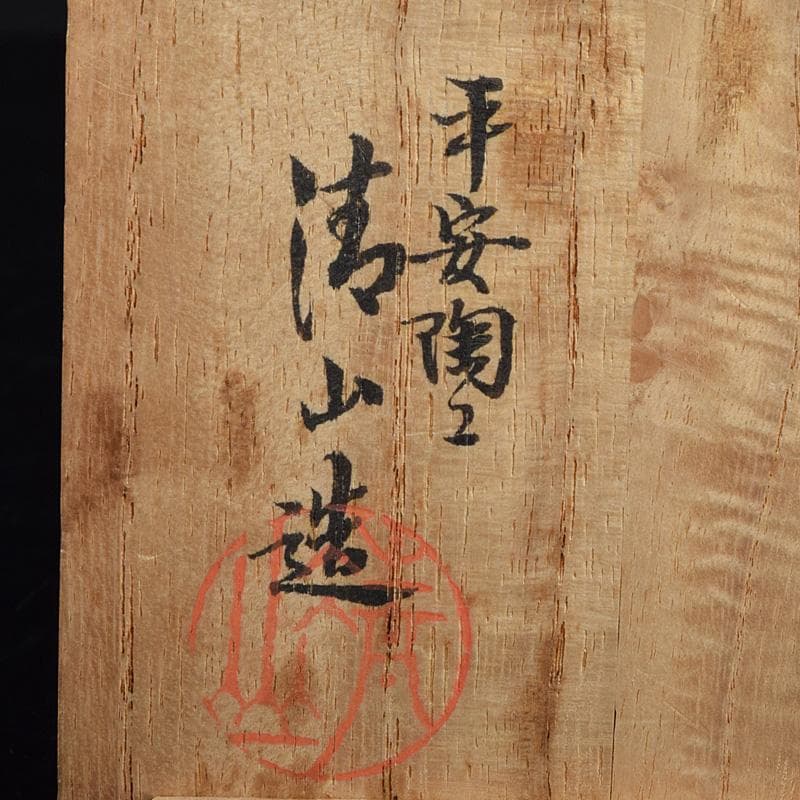 平安陶工
清山造